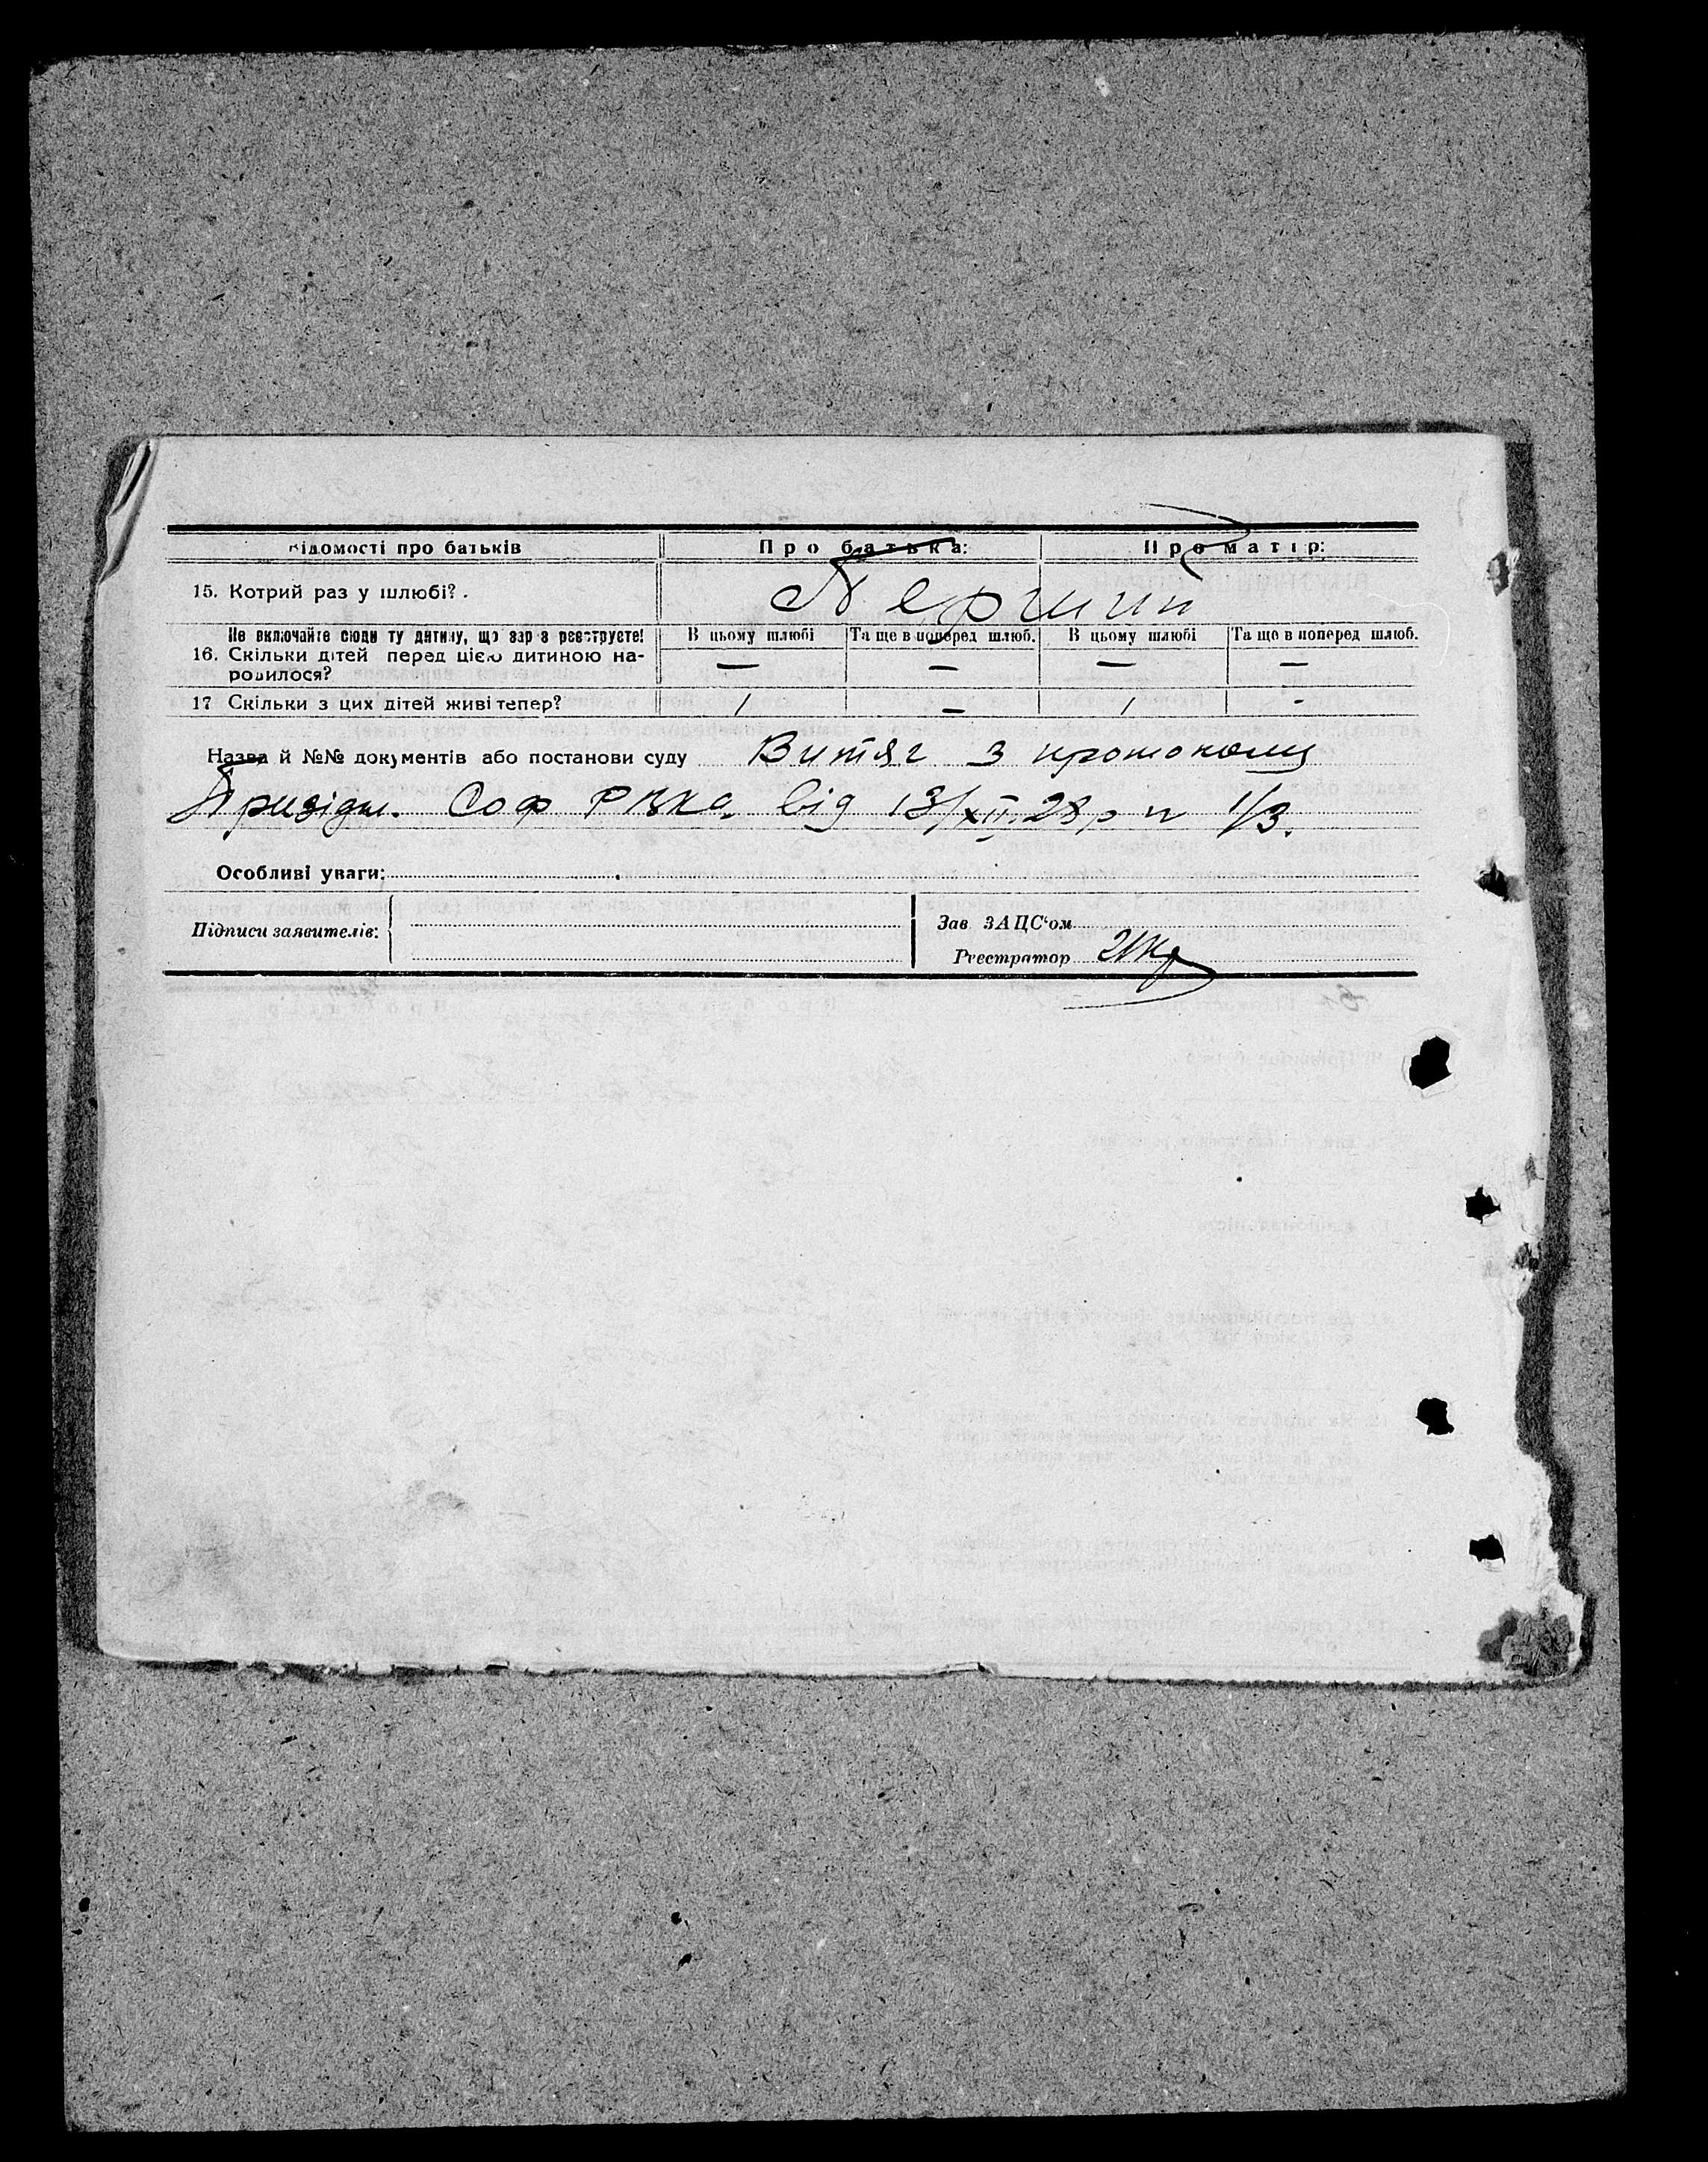 Відомості про батьків Про батька: Про матір:
15. Котрий раз у шлюбі? Перший
Не включайте сюди ту дитину, що зараз реєструєте! В цьому шлюбі Та ще в поперед шлюб. В цьому шлюбі Та ще в поперед шлюб.
16. Скільки дітей перед цією дитиною на-
родилося? — — — —
17 Скільки з цих дітей живі тепер? / — / -
Назва й №№ документів або постанови суду Витяг з протоколу
Президи. Соф РВКа. від 13/XII.28 р п 1/3.
Особливі уваги:
Підписи заявителів:
Зав ЗАЦС‘ом
Реєстратор